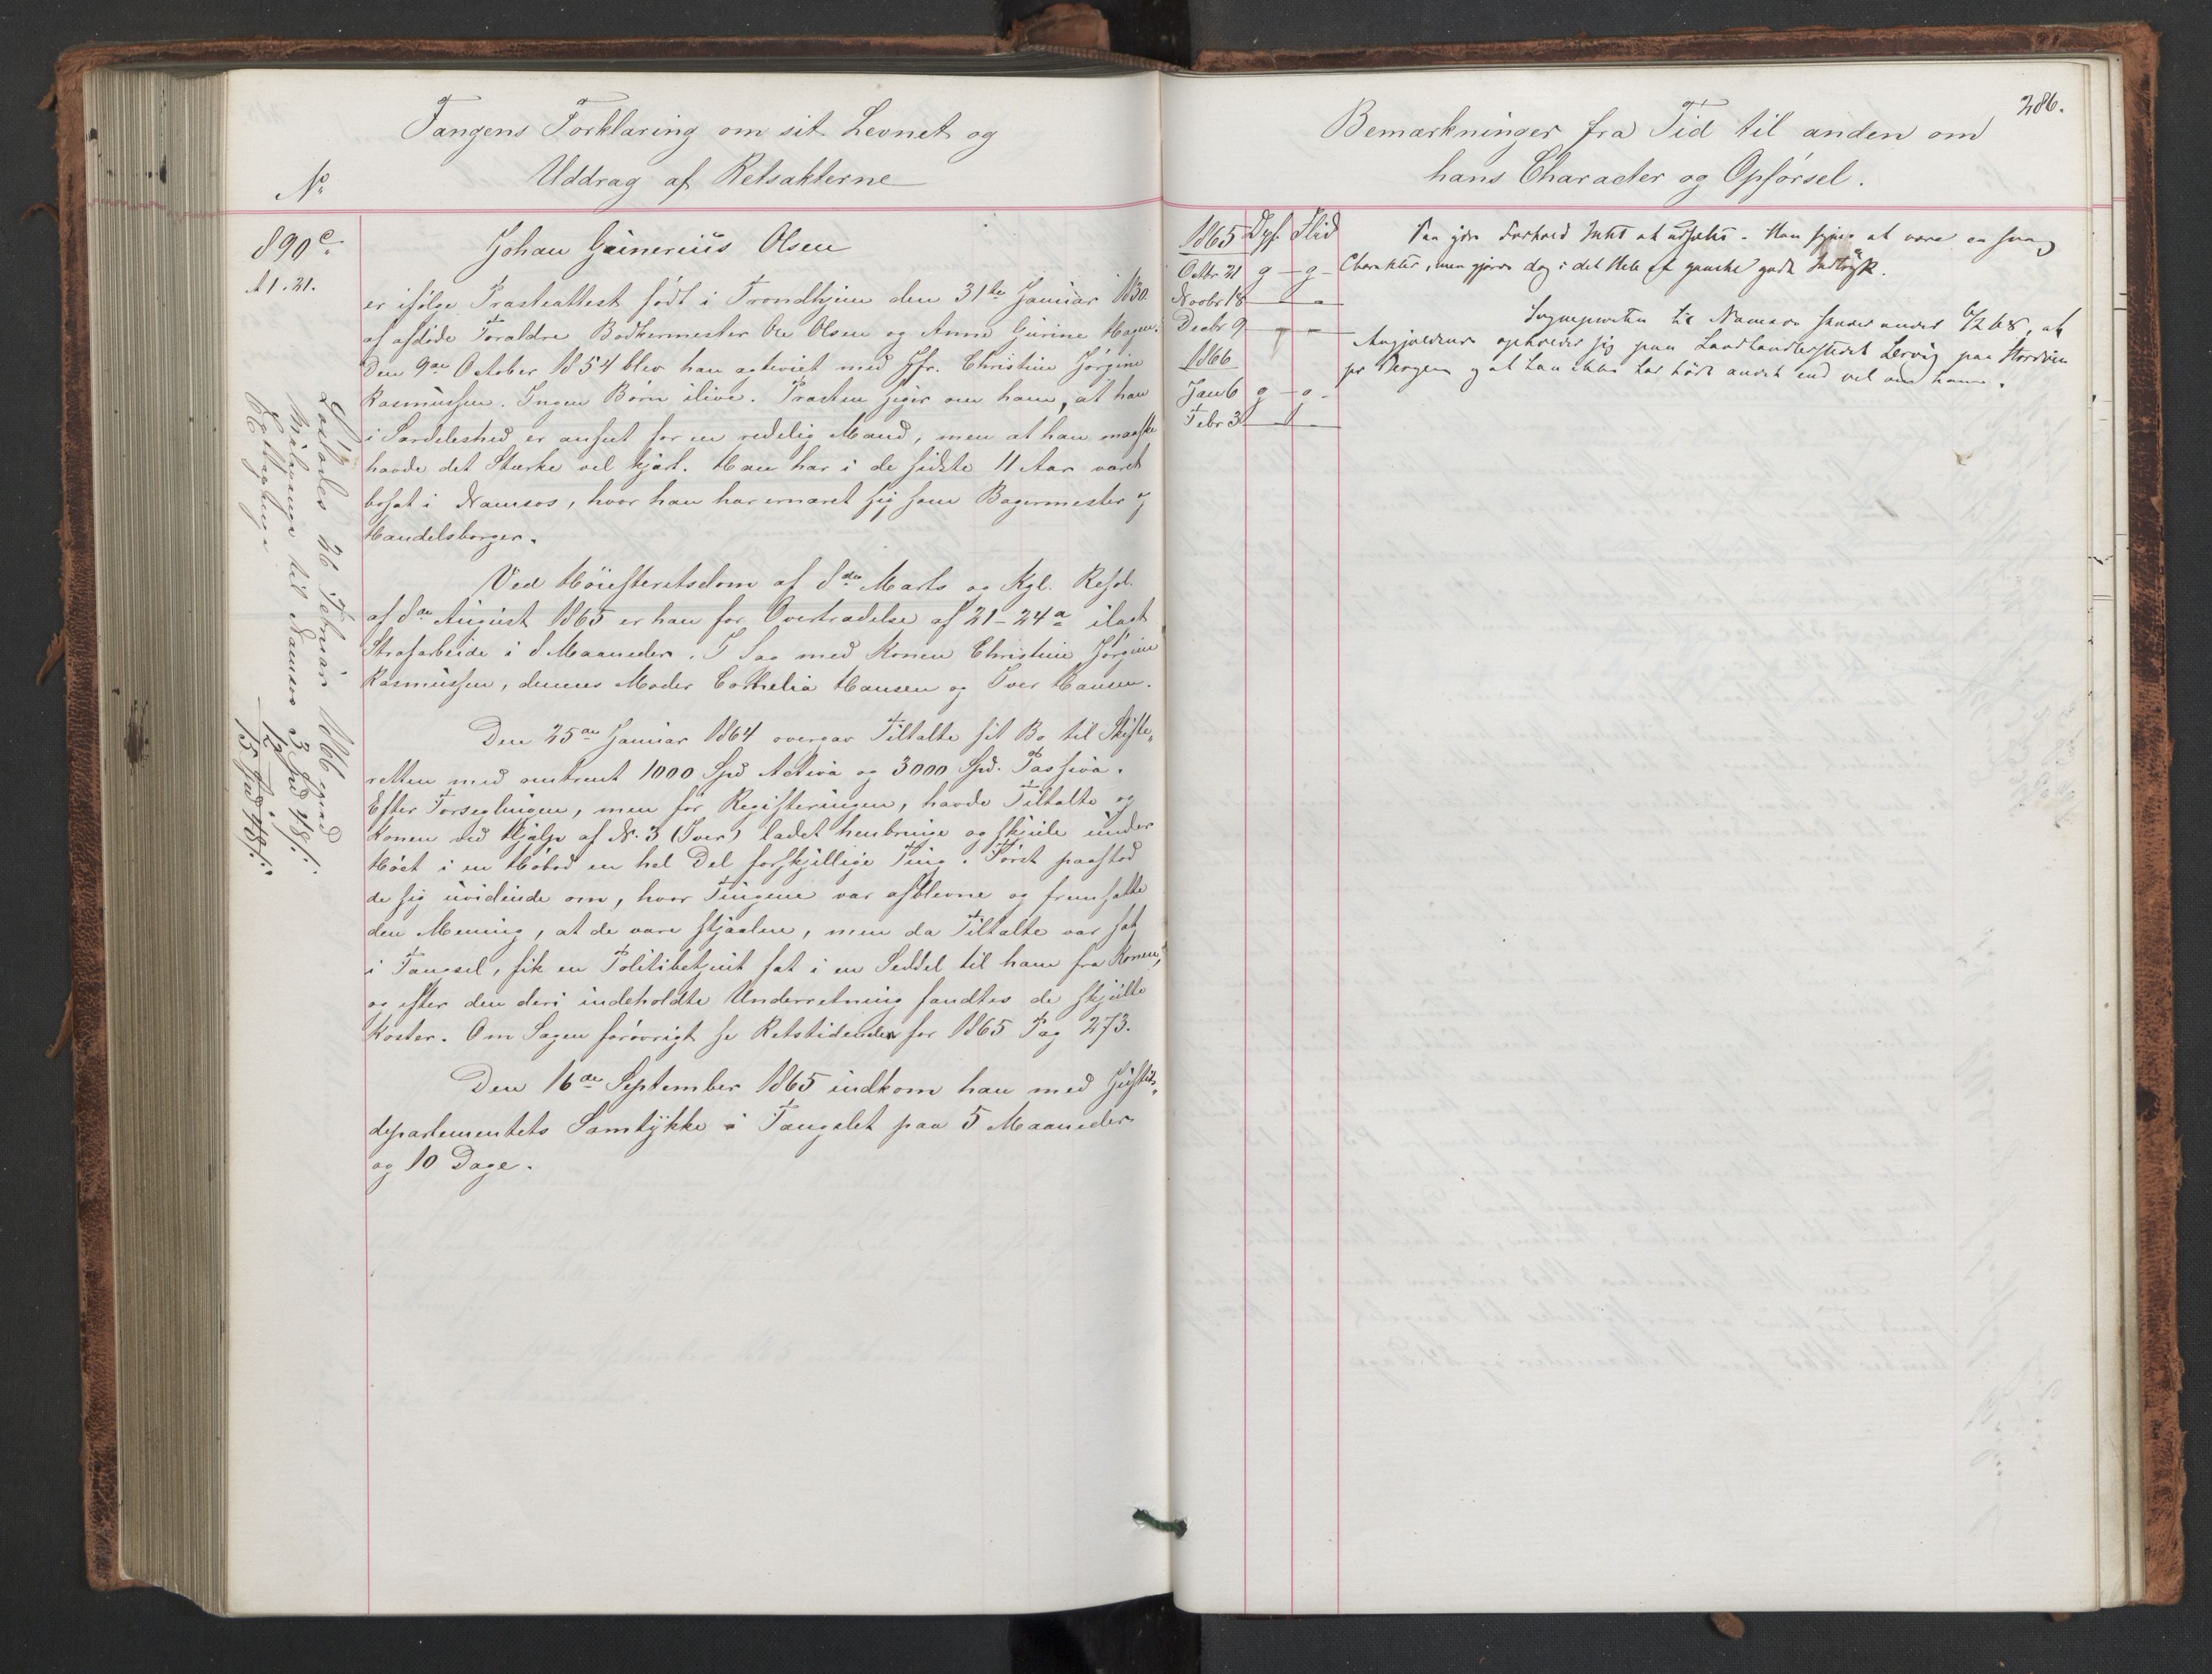 Fangens Forklaring om sit Levnet og
Uddrag af Retsakterne
No
890 c.
A 1. 21.
Johan Gunerius Olsen
er ifølge Præsteattest født i Trondhjem den 31te Januar 1830
af afdøde Forældre Bødkermester Ole Olsen og Anne Gurine Hagen.
Den 9de October 1854 blev han agteviet med Jfr. Christine Jørgine
Rasmussen. Ingen Børn ilive. Præsten siger om ham, at han
i Særdeleshed er anseet for en redelig Mand, men at han maaske
havde det Stærke vel kjært. Han har i de sidste 11 Aar været
bosat i Namsos, hvor han har ernæret sig som Bagermester og
Handelsborger.
Ved Høiesteretsdom af 8de Marts og Kgl. Resol.
af 8de August 1865 er han for Overtrædelse af 21-24 a ilagt
Strafarbeide i 8 Maaneder. I Sag med Konen Christine Jørgine
Rasmussen, dennes Moder Cornelia Hansen og Iver Hansen.
Den 25de Januar 1864 overgav Tiltalte sit Bo til Skifte„
retten med omtrent 1000 Spd Activa og 3000 Spd. Passiva.
Efter Forseglingen, men før Registeringen, havde Tiltalte og
Konen ved Hjælp af N. 3 (Iver) ladet henbringe og skjule under
Høet i en Høbod en hel Del forskjellige Ting. Først paastod
de sig uvidende om, hvor Tingene var afblevne og fremsatte
den Mening, at de vare stjaalne, men da Tiltalte var sat
i Fængsel, fik en Politibetjent fat i en Seddel til ham fra Konen,
og efter den deri indeholdte Underretning fandtes de skjulte
Koster. Om Sagen forøvrigt se Retstidende for 1865 Pag 273.
Den 16de September 1865 indkom han med Justits„
departementets Samtykke i Fængslet paa 5 Maaneder
og 10 Dage.
Løslades 26 Februar 1866 med
til Namsos 3 Spd 48 s.
12 - " -
15 Spd 48 s.
286.
Bemærkninger fra Tid til anden om
hans Character og Opførsel.
1865 Opf. Flid
Octbr. 21 g - g -
Novbr 18
Decbr 9
1866
Jan 6 g - g -
Febr 3
Paa hans Forhold Intet at udsætte. Han synes at være en svag
Charakter, men gjorde dog i det Hele et ganske godt Indtryk.
Sognepresten til Namsos skriver under 6/2 68, at
Angjældende opholder sig paa Landhandlerstedet Lervig paa Stordøen
pr Bergen og at han ikke har hørt andet end vel om ham.